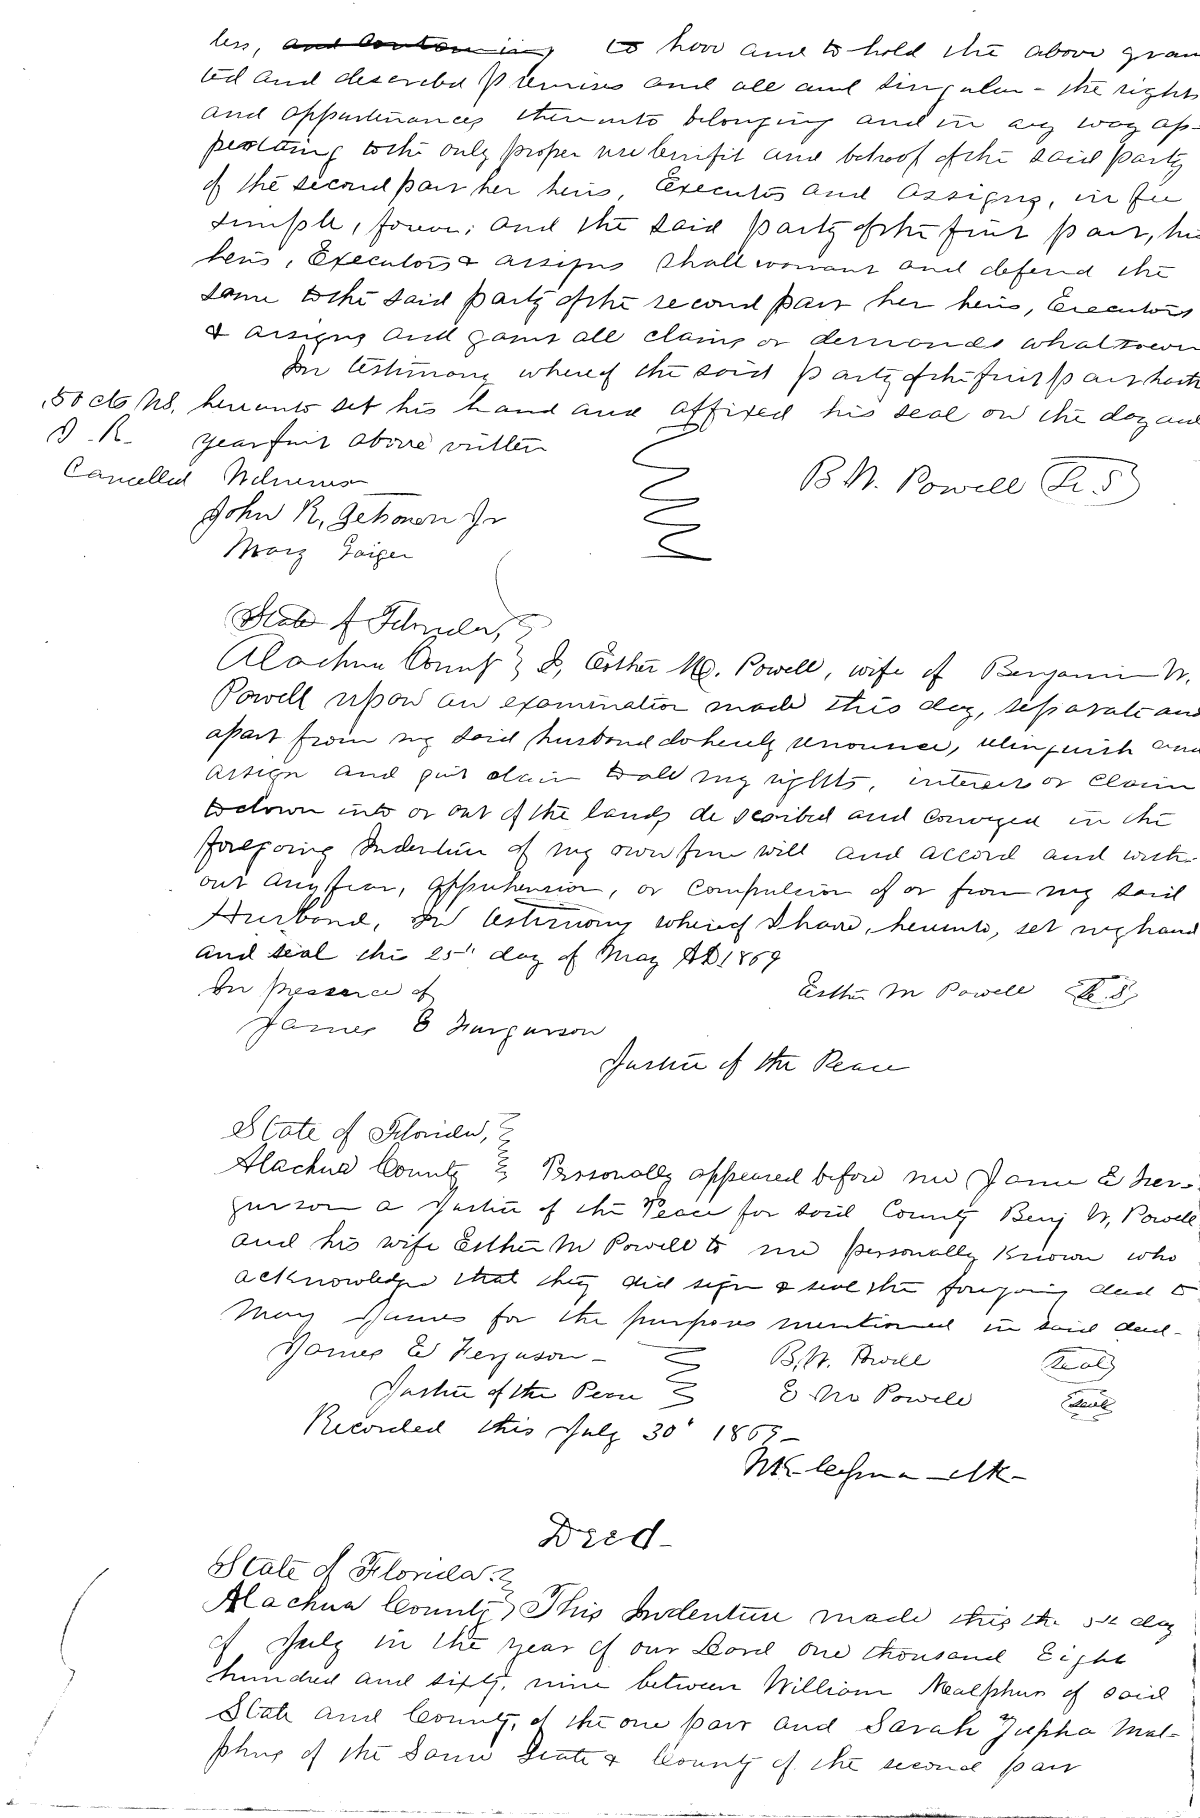 less, and containing to have and to hold the above gran
ted and described premises and all and singular - the rights
and appurtenances thereunto belonging and in any way ap-
pertaining to the only proper use benifit and behoof of the said party
of the second part her heirs, Executors and assigns, in fee
simple, forever; and the said party of the first part, his
heirs, Executors & assigns shall warrant and defend the
same to the said party of the second part her heirs, Executors
& assigns and gainst all claims or demands whatsoever
In testimony whereof the said party of the first part hath
.50 cts U.S. hereunto set his hand and affixed his seal on the day and
I. R. year first above written
Cancelled Witnesses B. W. Powell L. S
John R, Jr
Mary Gaiger
State of Florida,
Alachua County I, Esther M. Powell, wife of Benjamin W.
Powell upon an examination made this day, separate and
apart from my said husband do hereby renounce, relinquish and
assign and quit claim to all my rights, interest or claim
to dower into or out of the lands described and conveyed in the
foregoing Indenture of my own free will and accord and with-
out any fear, apprehension, or compulsion of or from my said
Husband, In testimony whereof I have, hereunto, set my hand
and seal this 25th day of May AD 1869
In presence of Esther M Powell L. S.
James E Furgurson
Justice of the Peace
State of Florida,
Alachua County Personally appeared before me James E Fer-
gurson a Justice of the Peace for said County Benj W, Powell
and his wife Esther M Powell to me personally known who
acknowledge that they did sign & seal the foregoing deed to
Mary James for the purposes mentioned in said deed-
James E Ferguson - B. W. Powell Seal
Justice of the Peace E M Powell Seal
Recorded this July 30' 1869-
Clk-
Deed-
State of Florida.
Alachua County This Indenture made this the 5th day
of July in the year of our Lord one thousand Eight
hundred and sixty, nine between William Mealphus of said
State and County, of the one part and Sarah Mal-
phus of the Same State & County of the second part